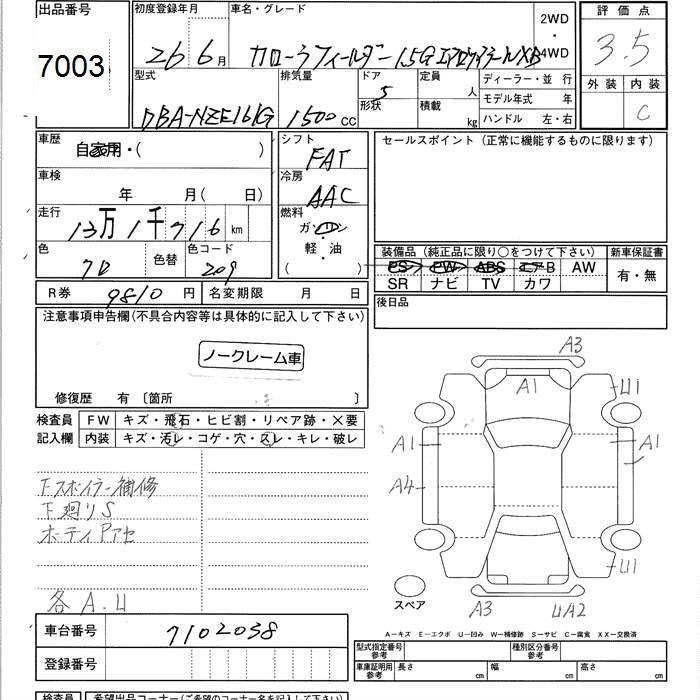 出品番号
7003
初度登録年月
26年 6月
車名・グレード
カローラフィールダー 1.5G エアロツアラーWXB
2WD
・
4WD
評価点
3.5
外装 内装
C
型式
DBA-NZE161G
排気量
1500cc
ドア
5
形状
定員 人
積載 kg
ディーラー・並行
モデル年式 年
ハンドル 左・右
車歴
自家用・( )
車検
年 月(日)
走行
13万1千716km
色
色替
色コード
209
シフト
FAT
冷房
AAC
燃料
ガソリン
・
軽・油
( )
セールスポイント (正常に機能するものに限ります)
装備品 (純正品に限り○をつけて下さい)
PS PW ABS エアB AW
SR ナビ TV カワ
新車保証書
有・無
R券 9810円
名変期限 月 日
後日品
注意事項申告欄(不具合内容等は具体的に記入して下さい)
ノークレーム車
修復歴 有 〔箇所 〕
検査員
記入欄
FW キズ・飛石・ヒビ割・リペア跡・×要
内装 キズ・汚レ・コゲ・穴・スレ・キレ・破レ
下スポイラー補修
下廻りS
ボディPアセ
各A.U
A3
A1
U1
A1
A1
A4
U1
A3
UA2
スペア
車台番号
7102038
登録番号
A−キズ E−エクボ U−凹み W−補修跡 S−サビ C−腐食 XX−交換済
型式指定番号
参考
種別区分番号
参考
車庫証明用
参考
長さ cm
幅 cm
高さ cm
検査員
希望出品コーナー(ご希望のコーナー名を記入下さい)